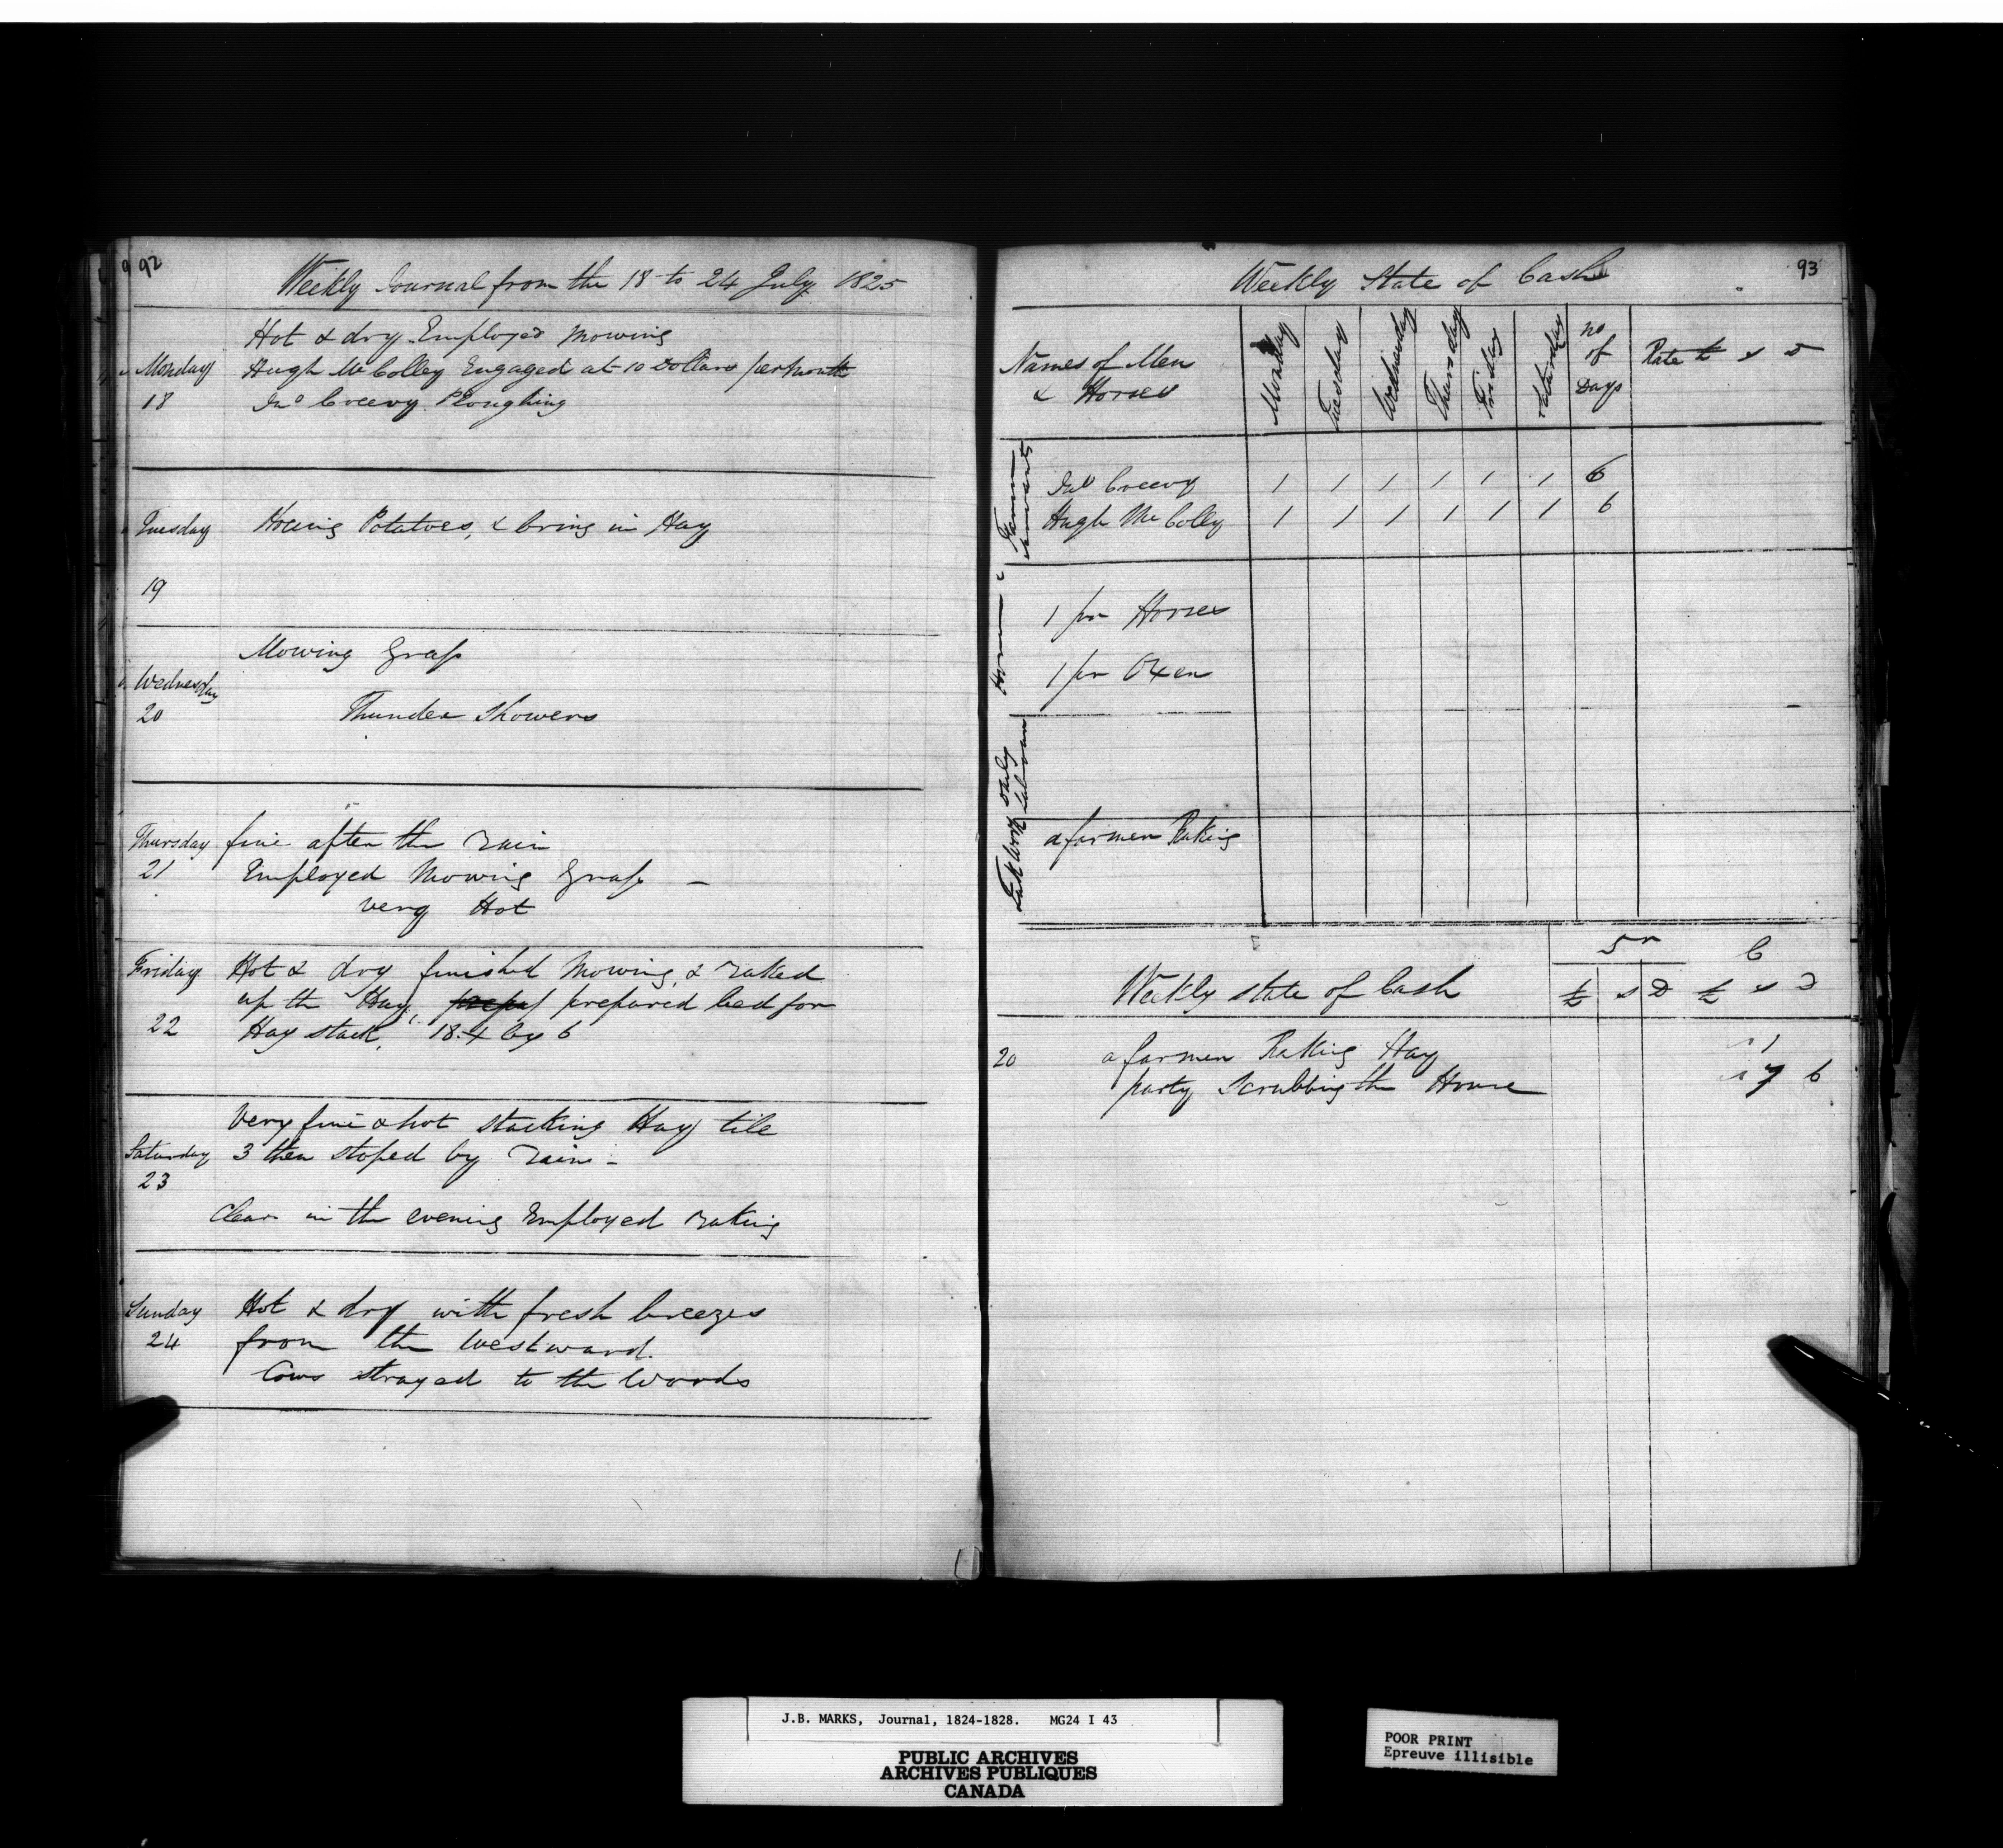 92
Weekly Journal from the 18 to 24 July 1825
Hot & dry Employed Mowing
Monday Hugh McColley Engaged at 10 Dollars per month
18 Jno Creevy Ploughing
Tuesday Hoeing Potatoes, & bring in Hay
19
Mowing Grass
Wednesday
20 Thunder Showers
Thursday fine after the rain
21 Employed Mowing Grass –
very Hot
Friday Hot & dry finished Mowing & raked
up the Hay, prepared bed for
22 Hay stack, 18.4 by 6
Very fine & hot stacking Hay till
Saturday 3 then stoped by rain –
23
Clear in the evening Employed raking
Sunday Hot & dry with fresh breezes
24 from the Westward.
Cows strayed to the Woods
93
Weekly State of Cash
Names of Men & Horses Monday Tuesday Wednesday Thursday Friday Saturday No of Days Rate £ s D
Farm Servants
Jno Creevy 1 1 1 1 1 1 6
Hugh McColly 1 1 1 1 1 1 6
1 pr Horses
1 pr Oxen
Daily Labourers
Task Work
a farmer Raking
Weekly state of Cash £ s D £ s D
20 a farmer Raking Hay 1
party Scrubbing the House 7 6
J.B. MARKS, Journal, 1824-1828. MG24 I 43
PUBLIC ARCHIVES
ARCHIVES PUBLIQUES
CANADA
POOR PRINT
Epreuve illisible